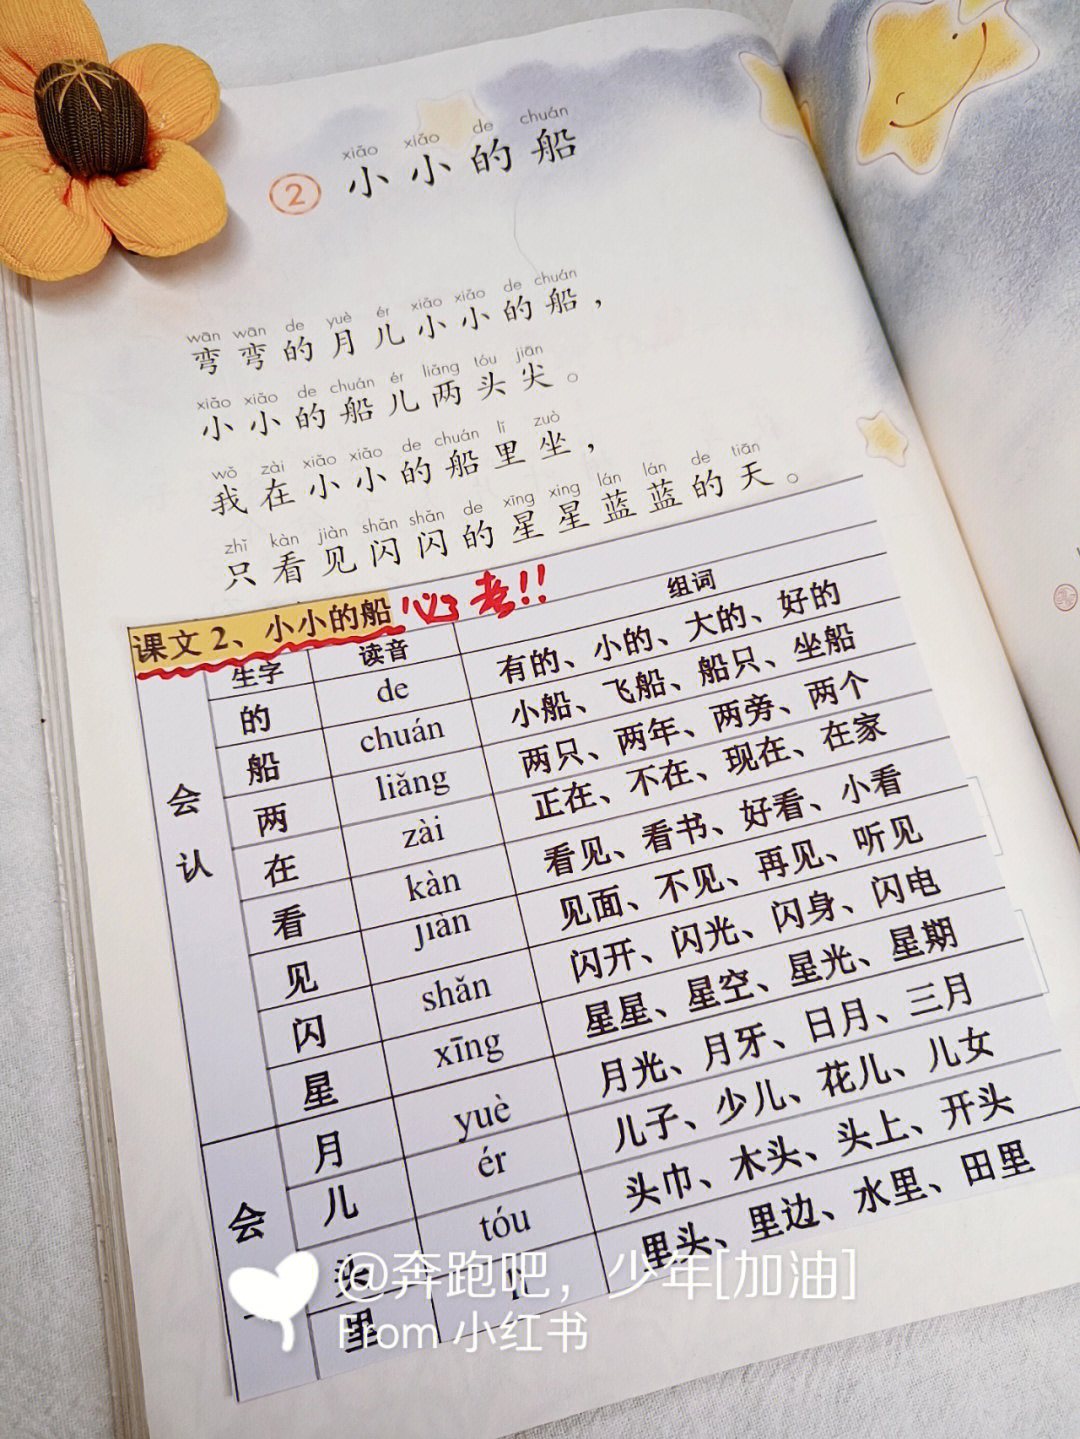 xiǎo xiǎo de chuán
② 小小的船
wān wān de yuè ér xiǎo xiǎo de chuán
弯弯的月儿小小的船，
xiǎo xiǎo de chuán ér liǎng tóu jiān
小小的船儿两头尖。
wǒ zài xiǎo xiǎo de chuán lǐ zuò
我在小小的船里坐，
zhǐ kàn jiàn shǎn shǎn de xīng xing lán lán de tiān
只看见闪闪的星星蓝蓝的天。
课文2、小小的船 必考!!
生字 读音 组词
会认
的 de 有的、小的、大的、好的
船 chuán 小船、飞船、船只、坐船
两 liǎng 两只、两年、两旁、两个
在 zài 正在、不在、现在、在家
看 kàn 看见、看书、好看、小看
见 jiàn 见面、不见、再见、听见
闪 shǎn 闪开、闪光、闪身、闪电
星 xīng 星星、星空、星光、星期
会
月 yuè 月光、月牙、日月、三月
儿 ér 儿子、少儿、花儿、儿女
头 tóu 头巾、木头、头上、开头
里 里头、里边、水里、田里
@奔跑吧，少年[加油]
From 小红书